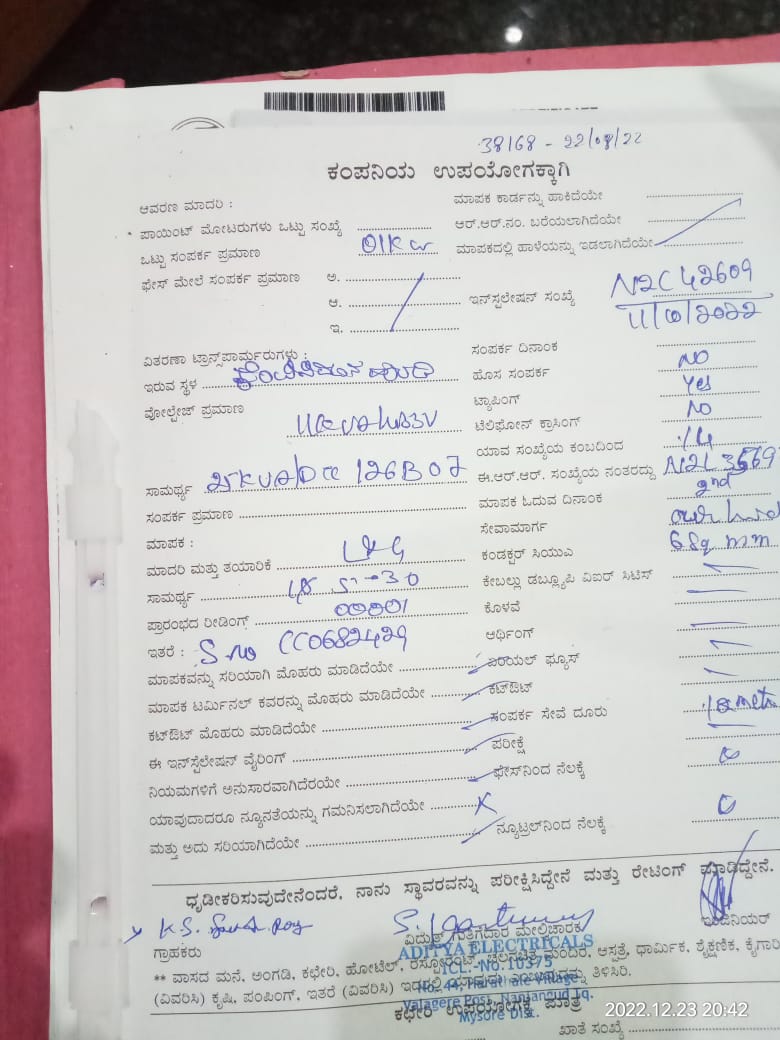 38168 - 22/08/22
ಕಂಪನಿಯ ಉಪಯೋಗಕ್ಕಾಗಿ
ಆವರಣ ಮಾದರಿ :
ಮಾಪಕ ಕಾರ್ಡನ್ನು ಹಾಕಿದೆಯೇ
ಪಾಯಿಂಟ್ ಮೋಟರುಗಳು ಒಟ್ಟು ಸಂಖ್ಯೆ
ಆರ್.ಆರ್.ನಂ. ಬರೆಯಲಾಗಿದೆಯೇ
ಒಟ್ಟು ಸಂಪರ್ಕ ಪ್ರಮಾಣ
ಮಾಪಕದಲ್ಲಿ ಹಾಳೆಯನ್ನು ಇಡಲಾಗಿದೆಯೇ
ಫೇಸ್ ಮೇಲೆ ಸಂಪರ್ಕ ಪ್ರಮಾಣ ಅ.
ಆ.
ಇ.
ಇನ್‌ಸ್ಟಲೇಷನ್ ಸಂಖ್ಯೆ N2C42609
ವಿತರಣಾ ಟ್ರಾನ್ಸ್‌ಫಾರ್ಮರುಗಳು :
ಸಂಪರ್ಕ ದಿನಾಂಕ
ಇರುವ ಸ್ಥಳ
ಹೊಸ ಸಂಪರ್ಕ NO
ವೋಲ್ಟೇಜ್ ಪ್ರಮಾಣ
ಟ್ಯಾಪಿಂಗ್ Yes
ಟೆಲಿಫೋನ್ ಕ್ರಾಸಿಂಗ್ NO
ಯಾವ ಸಂಖ್ಯೆಯ ಕಂಬದಿಂದ
ಸಾಮರ್ಥ್ಯ 25KVA
ಈ.ಆರ್.ಆರ್. ಸಂಖ್ಯೆಯ ನಂತರದ್ದು
ಸಂಪರ್ಕ ಪ್ರಮಾಣ
ಮಾಪಕ ಓದುವ ದಿನಾಂಕ 2nd
ಮಾಪಕ :
ಸೇವಾಮಾರ್ಗ
ಮಾದರಿ ಮತ್ತು ತಯಾರಿಕೆ L&G
ಕಂಡಕ್ಟರ್ ಸಿಯುಎ 6 Sq mm
ಸಾಮರ್ಥ್ಯ 5-30
ಕೇಬಲ್ಲು ಡಬ್ಲ್ಯೂಪಿ ವಿಐರ್ ಸಿಟಿಸ್
ಪ್ರಾರಂಭದ ರೀಡಿಂಗ್ 00001
ಕೊಳವೆ
ಇತರೆ : S.no CC0682429
ಆರ್ಥಿಂಗ್
ಮಾಪಕವನ್ನು ಸರಿಯಾಗಿ ಮೊಹರು ಮಾಡಿದೆಯೇ
ಏರಿಯಲ್ ಫ್ಯೂಸ್
ಮಾಪಕ ಟರ್ಮಿನಲ್ ಕವರನ್ನು ಮೊಹರು ಮಾಡಿದೆಯೇ
ಕಟ್‌ಔಟ್
ಕಟ್‌ಔಟ್ ಮೊಹರು ಮಾಡಿದೆಯೇ
ಸಂಪರ್ಕ ಸೇವೆ ದೂರು
ಈ ಇನ್‌ಸ್ಟಲೇಷನ್ ವೈರಿಂಗ್
ಪರೀಕ್ಷೆ
ನಿಯಮಗಳಿಗೆ ಅನುಸಾರವಾಗಿದೆರಯೇ
ಫೇಸ್‌ನಿಂದ ನೆಲಕ್ಕೆ
ಯಾವುದಾದರೂ ನ್ಯೂನತೆಯನ್ನು ಗಮನಿಸಲಾಗಿದೆಯೇ X
ಮತ್ತು ಅದು ಸರಿಯಾಗಿದೆಯೇ
ನ್ಯೂಟ್ರಲ್‌ನಿಂದ ನೆಲಕ್ಕೆ
ಧೃಡೀಕರಿಸುವುದೇನೆಂದರೆ, ನಾನು ಸ್ಥಾವರವನ್ನು ಪರೀಕ್ಷಿಸಿದ್ದೇನೆ ಮತ್ತು ರೇಟಿಂಗ್ ಮಾಡಿದ್ದೇನೆ.
ಗ್ರಾಹಕರು
ವಿದ್ಯುತ್ ಗುತ್ತಿಗೆದಾರ ಮೇಲ್ವಿಚಾರಕ
ಇಂಜಿನಿಯರ್
ADITYA ELECTRICALS
LCL. No.10375
No. 44, Harathale Village
Yalagere Post, Nanjangud Tq.
Mysore Dist.
** ವಾಸದ ಮನೆ, ಅಂಗಡಿ, ಕಛೇರಿ, ಹೋಟೆಲ್, ರೆಸ್ಟೋರೆಂಟ್, ಚಲನಚಿತ್ರ ಮಂದಿರ, ಆಸ್ಪತ್ರೆ, ಧಾರ್ಮಿಕ, ಶೈಕ್ಷಣಿಕ, ಕೈಗಾರಿ
(ವಿವರಿಸಿ) ಕೃಷಿ, ಪಂಪಿಂಗ್, ಇತರೆ (ವಿವರಿಸಿ) ತಿಳಿಸಿರಿ.
ಕಛೇರಿ ಉಪಯೋಗಕ್ಕೆ ಮಾತ್ರ
ಖಾತೆ ಸಂಖ್ಯೆ
2022.12.23 20:42